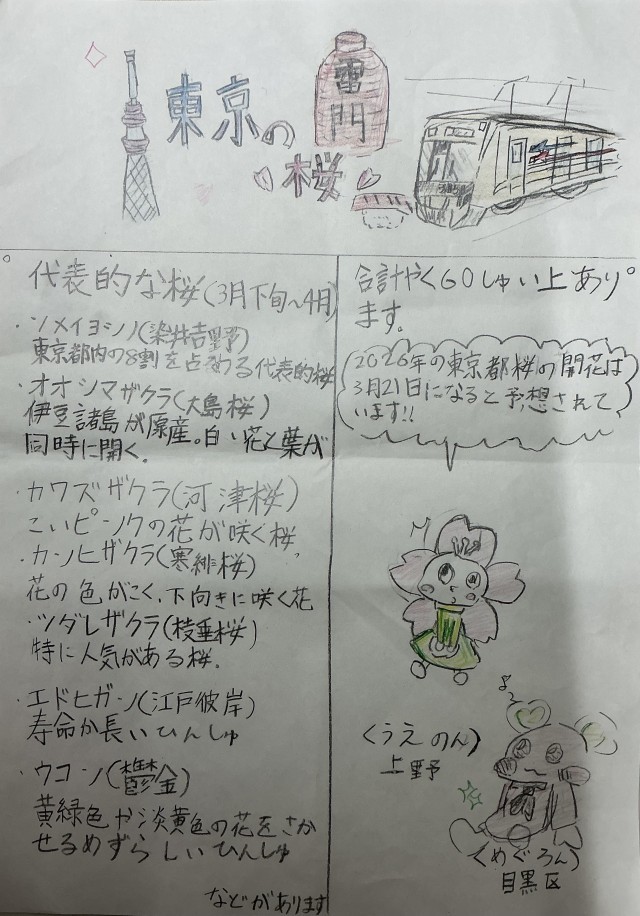 東京の
雷門
桜
代表的な桜(3月下旬〜4月)
・ソメイヨシノ(染井吉野)
東京都内の8割を占める代表的桜
・オオシマザクラ(大島桜)
伊豆諸島が原産。白い花と葉が
同時に開く。
・カワズザクラ(河津桜)
こいピンクの花が咲く桜
・カンヒザクラ(寒緋桜)
花の色がこく、下向きに咲く花
・シダレザクラ(枝垂桜)
特に人気がある桜。
・エドヒガン(江戸彼岸)
寿命が長いひんしゅ
・ウコン(鬱金)
黄緑色や淡黄色の花をさか
せるめずらしいひんしゅ
などがあります
合計やく60しゅい上あり
ます。
2026年の東京都桜の開花は
3月21日になると予想されて
います!!
(うえのん)
上野
(めぐろん)
目黒区